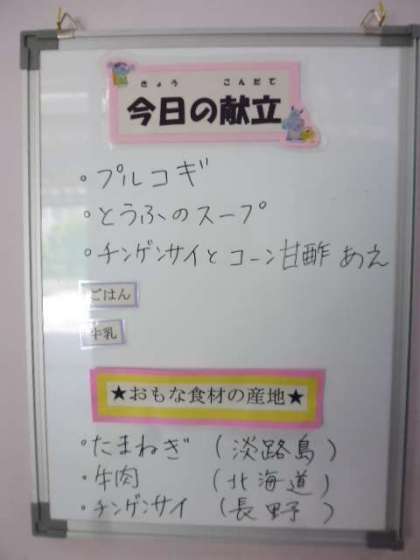 きょう こんだて
今日の献立
・プルコギ
・とうふのスープ
・チンゲンサイとコーン甘酢あえ
ごはん
牛乳
★おもな食材の産地★
・たまねぎ (淡路島)
・牛肉 (北海道)
・チンゲンサイ (長野)